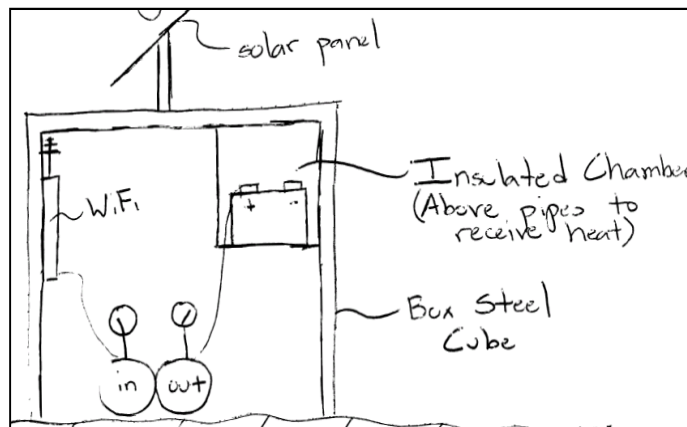 solar panel
Insulated Chamber
(Above pipes to
receive heat)
WiFi
+ -
Box Steel
Cube
in out